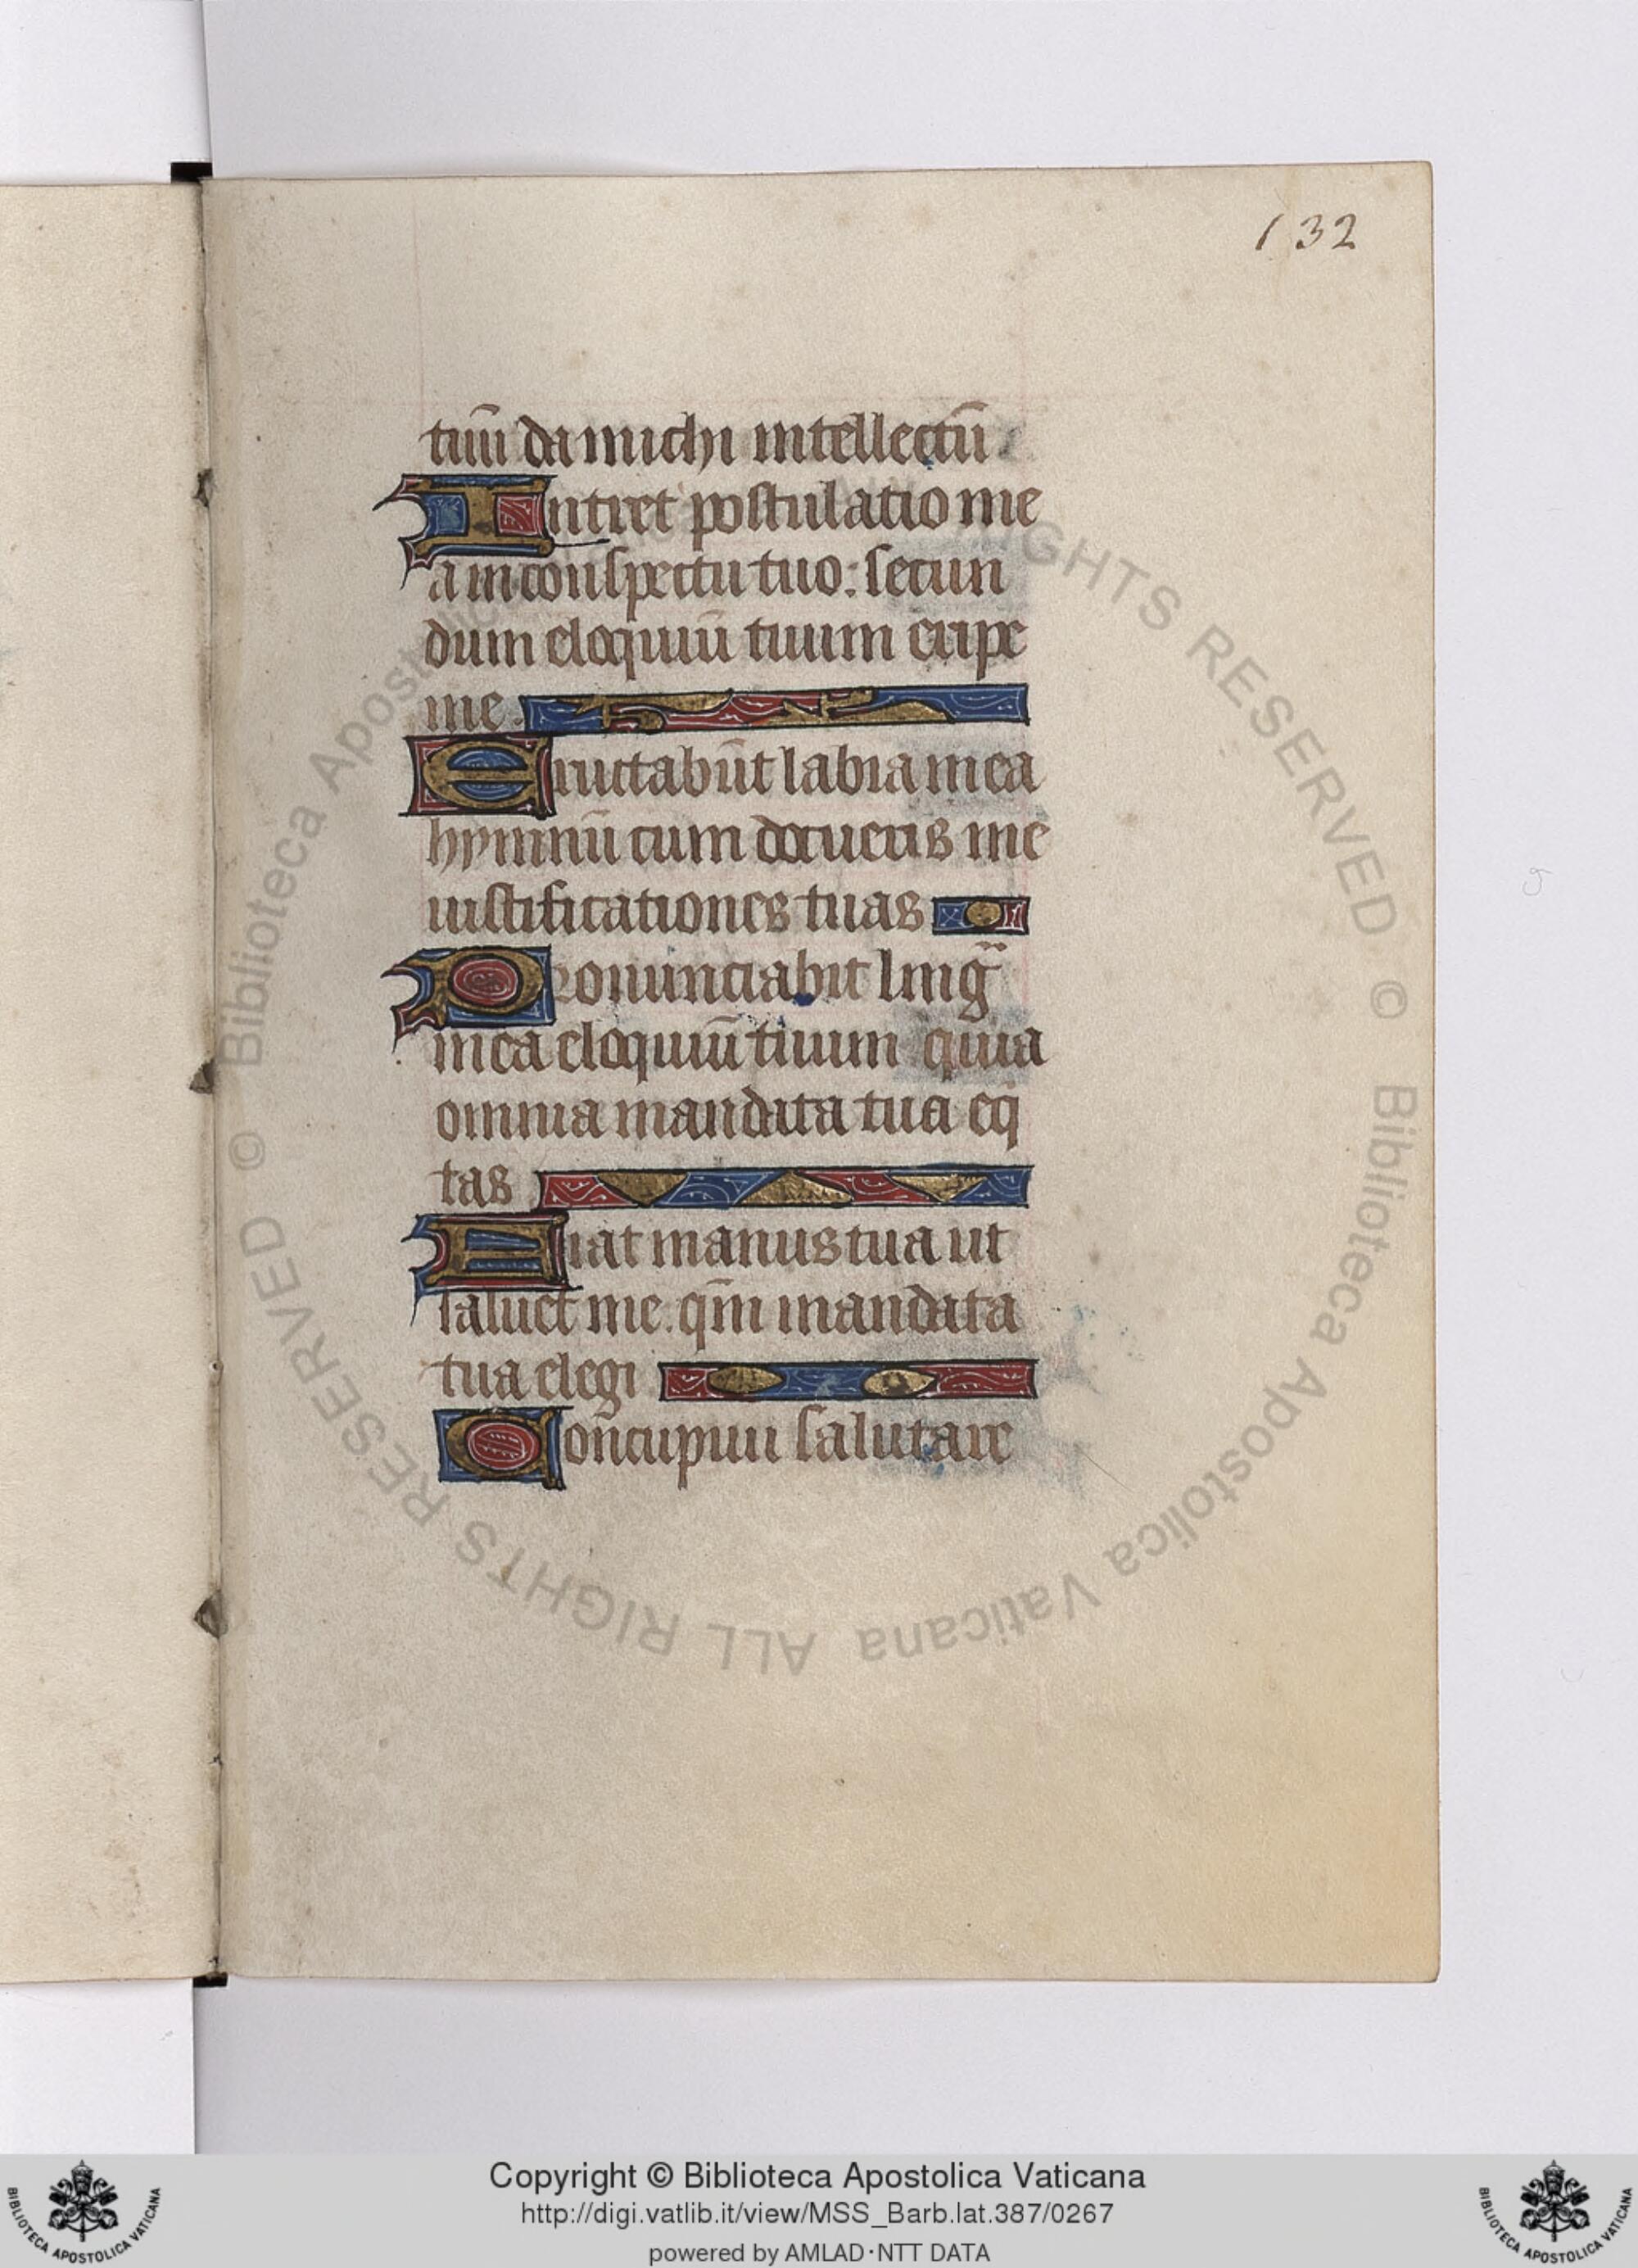 132
tuū da michi intellectū
Intret postulatio me
a in conspectu tuo: secun
dum eloquiū tuum eripe
me.
Eructabūt labia mea
hymnū cum docueris me
iustificationes tuas
Pronunciabit ling̃
mea eloquiū tuum quia
omnia mandata tua eq̇
tas
Fiat manus tua ut
saluet me. qm̄ mandata
tua elegi
Concupiui salutare
Biblioteca Apostolica Vaticana ALL RIGHTS RESERVED ©
Copyright © Biblioteca Apostolica Vaticana
http://digi.vatlib.it/view/MSS_Barb.lat.387/0267
powered by AMLAD·NTT DATA
BIBLIOTECA APOSTOLICA VATICANA
BIBLIOTECA APOSTOLICA VATICANA